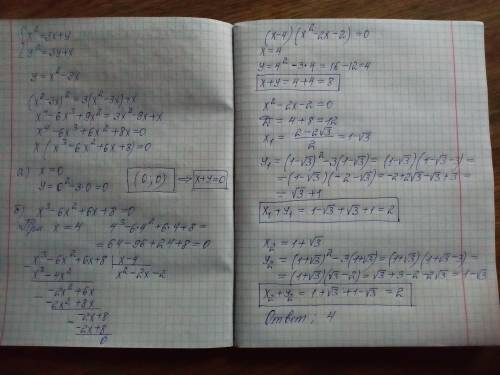 { x² = 3x+y
{ y² = 3y+x
y = x² - 3x
(x²-3x)² = 3(x²-3x)+x
x⁴ - 6x³ + 9x² = 3x² - 9x + x
x⁴ - 6x³ + 6x² + 8x = 0
x(x³ - 6x² + 6x + 8) = 0
а) x = 0
y = 0² - 3·0 = 0 (0; 0) ⟹ x+y=0
б) x³ - 6x² + 6x + 8 = 0
При x = 4 4³ - 6·4² + 6·4 + 8 =
= 64 - 96 + 24 + 8 = 0
x³ - 6x² + 6x + 8 | x-4
x³ - 4x² x² - 2x - 2
-2x² + 6x
-2x² + 8x
-2x + 8
-2x + 8
0
(x-4)(x²-2x-2) = 0
x = 4
y = 4² - 3·4 = 16 - 12 = 4
x+y = 4+4 = 8
x² - 2x - 2 = 0
D = 4 + 8 = 12
x₁ = (2 - 2√3)/2 = 1-√3
y₁ = (1-√3)² - 3(1-√3) = (1-√3)(1-√3-3) =
= (1-√3)(-2-√3) = -2+2√3-√3+3 =
= √3+1
x₁+y₁ = 1-√3+√3+1 = 2
x₂ = 1+√3
y₂ = (1+√3)² - 3(1+√3) = (1+√3)(1+√3-3) =
= (1+√3)(√3-2) = √3+3-2-2√3 = 1-√3
x₂+y₂ = 1+√3+1-√3 = 2
Ответ: 4